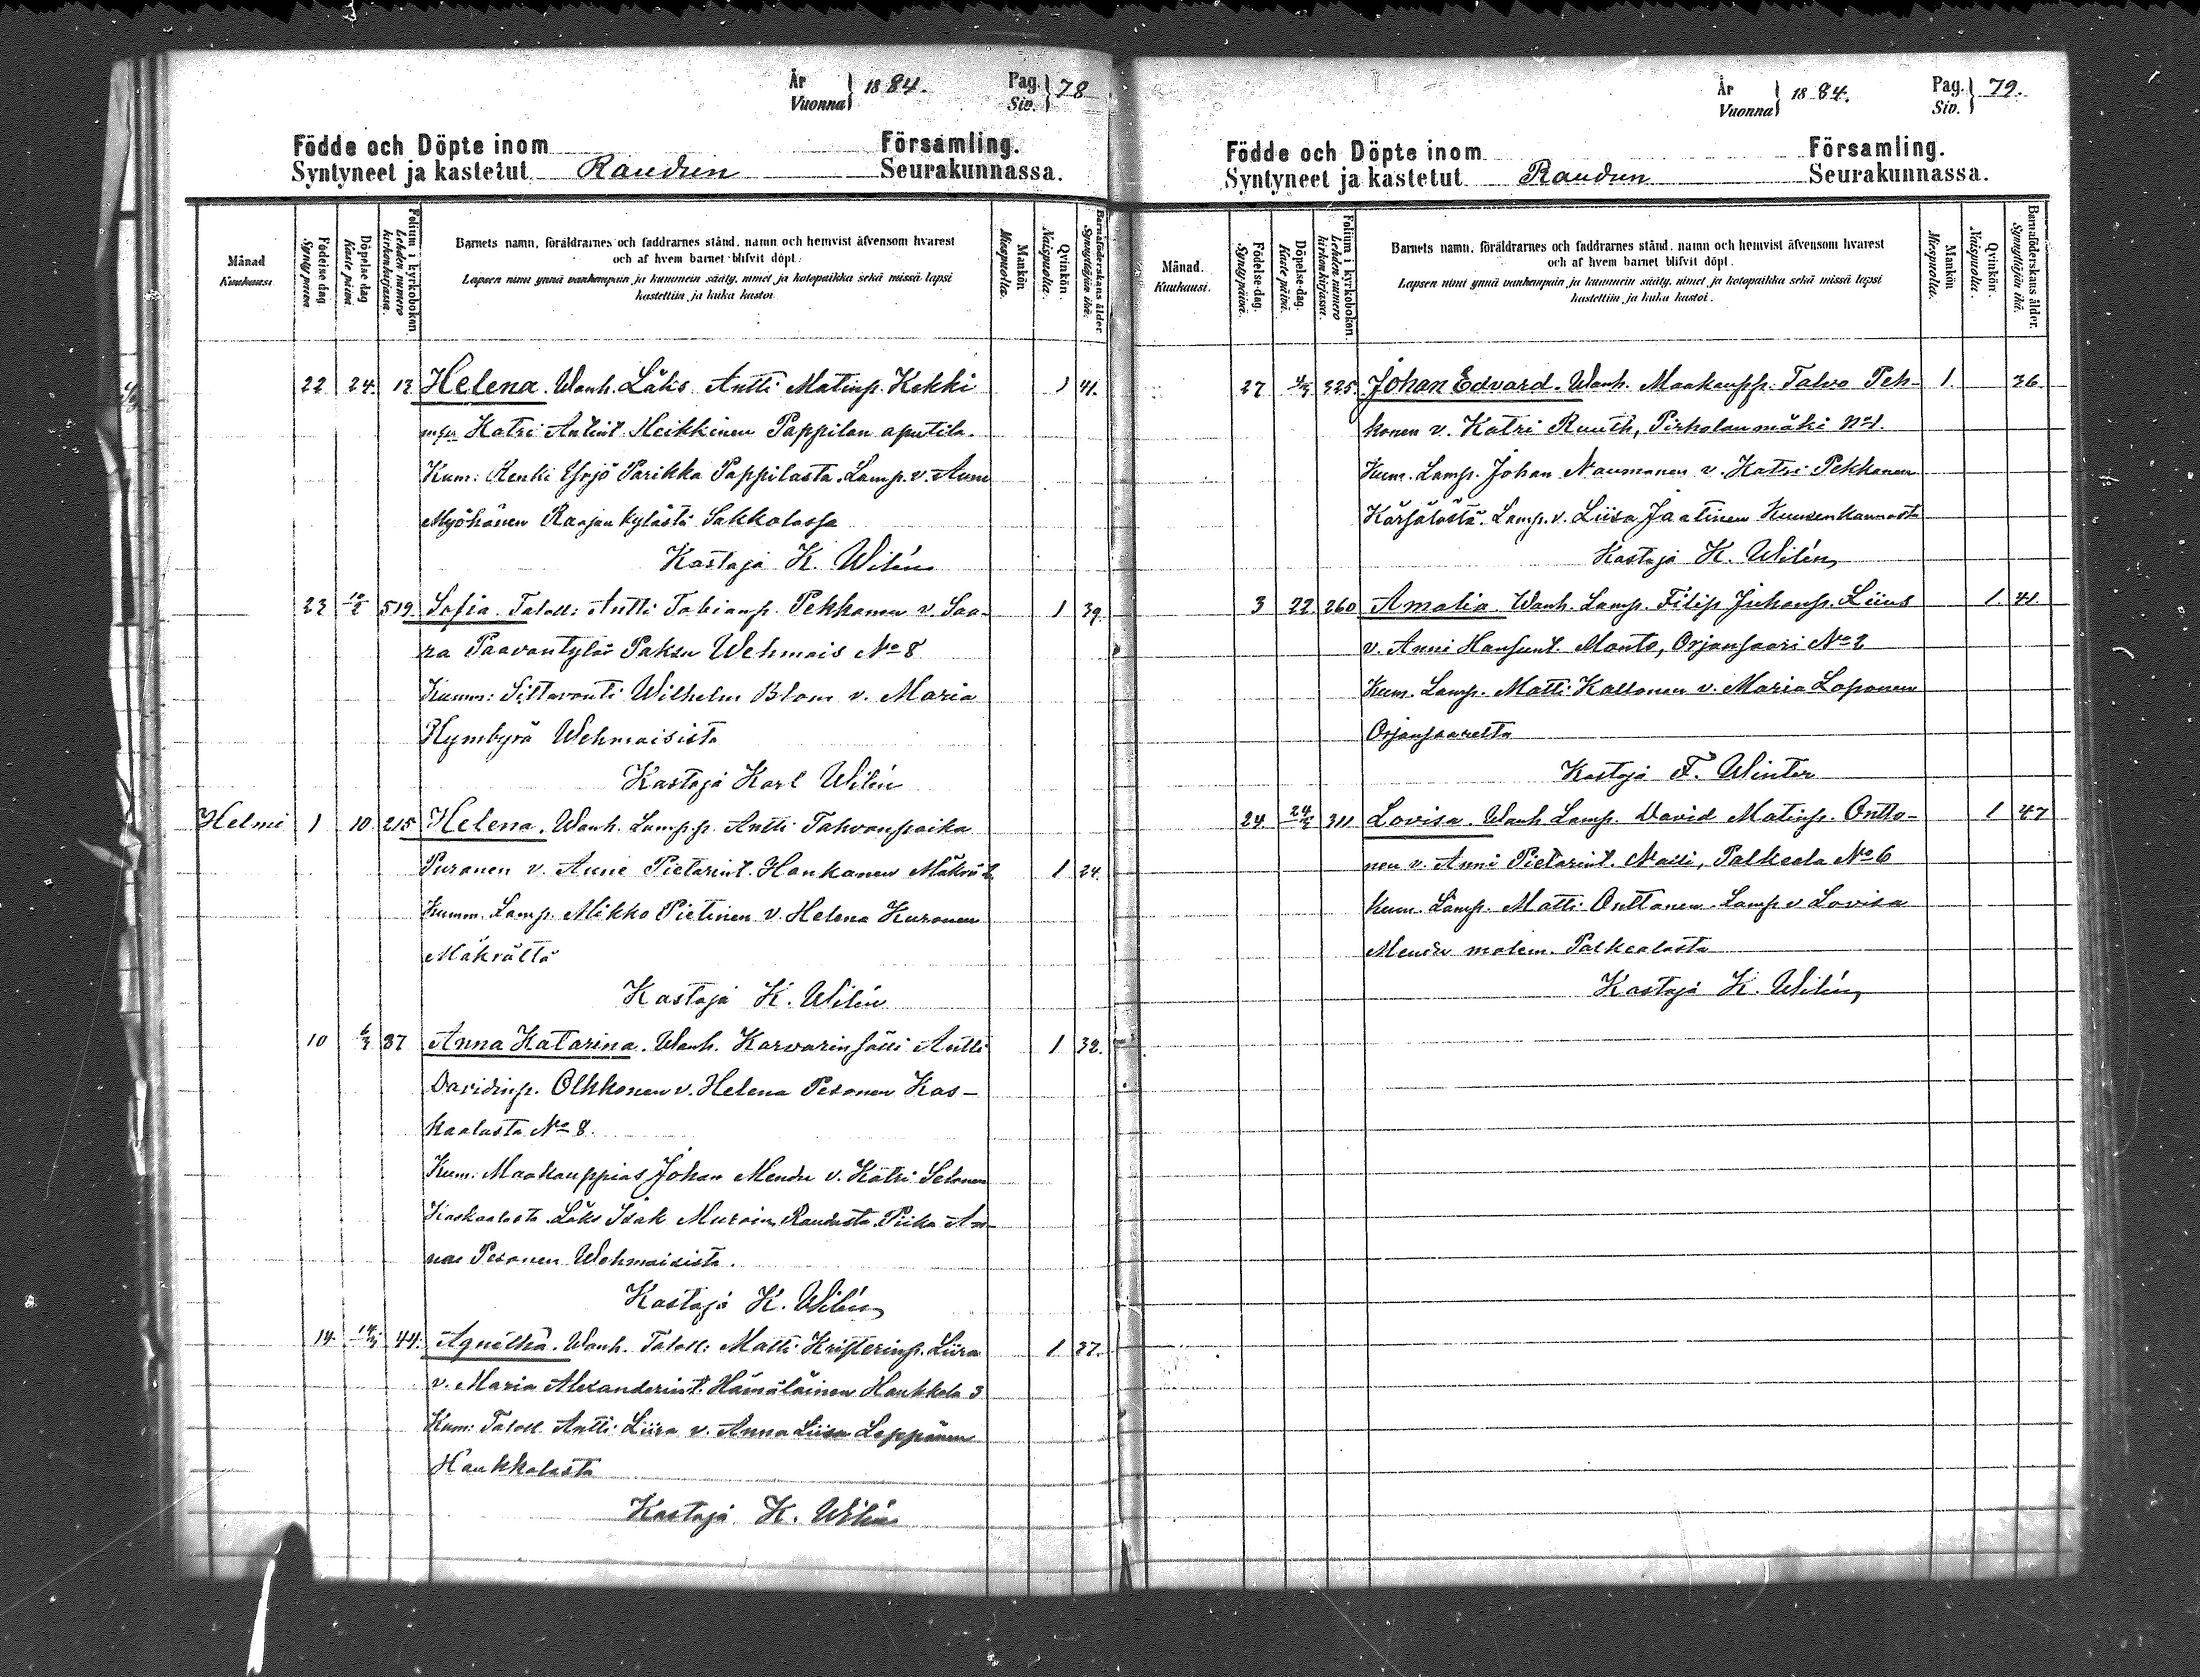 År
Vuonna } 1884. Pag. Siv. } 78
Födde och Döpte inom Församling.
Syntyneet ja kastetut Raudun Seurakunnassa.
Månad Kuukausi.
Födelse-dag Syntypäivä
Döpelse-dag Kaste päivä.
Folium i kyrkoboken. Lehden numero kirkonkirjassa.
Barnets namn, föräldrarnes och faddrarnes stånd, namn och hemvist äfvensom hvarest
och af hvem barnet blifvit döpt.
Lapsen nimi ynnä vanhempain ja kummein sääty, nimet ja kotopaikka sekä missä lapsi
kastettiin ja kuka kastoi.
Mankön Miespuolia.
Qvinkön. Naispuolia.
Barnaföderskans ålder. Synnyttäjän ikä.
22 24. 13 Helena. Wanh. Läks. Antti Matinp. Kekki 1 41.
Katri Antint. Heikkinen Pappilan aputila.
Kum: Renki Yrjö Parikka Pappilasta. Lamp. v. Anni
Myöhänen Raajun kylästä Sakkolassa
Kastaja K. Wilén
23 10/2 519. Sofia. Taloll: Antti Tobianp. Pekkanen v. Saa- 1 39.
ra Paavontytär Paksu Wehmais No 8
Kumm: Siltavouti Wilhelm Blom v. Maria
Hymbyrä Wehmaisista
Kastaja Karl Wilén
Helmi 1 10 215 Helena. Wanh. Lamp.p. Antti Tahvonpoika
Puronen v. Anni Pietarint. Honkanen Mäkrä 2 1 24.
Kumm. Lamp. Mikko Pietinen v. Helena Kuronen
Mäkrältä
Kastaja K. Wilén
10 6/3 37 Anna Katarina. Wanh. Karvarinsälli Antti 1 32.
Davidinp. Olkkonen v. Helena Pesonen Kas-
kaalasta No 8.
Kum: Maakauppias Johan Mendu v. Katri Selonen
Kaskaalasta. Läks Isak Muroin Raudusta. Piika An-
na Pesonen Wehmaisista.
Kastaja K. Wilén
14. 14/3 44. Agnetha. Wanh. Taloll: Matti Kristerinp. Liira 1 37.
v. Maria Alexanderint. Hämäläinen Haukkala 3
Kum: Taloll Antti Liira v. Anna Liisa Leppänen
Haukkalasta
Kastaja K. Wilén
År
Vuonna } 1884. Pag. Siv. } 79.
Födde och Döpte inom Församling.
Syntyneet ja kastetut Raudun Seurakunnassa.
Månad. Kuukausi.
Födelse-dag. Syntypäivä.
Döpelse-dag. Kaste päivä.
Folium i kyrkoboken. Lehden numero kirkonkirjassa.
Barnets namn, föräldrarnes och faddrarnes stånd, namn och hemvist äfvensom hvarest
och af hvem barnet blifvit döpt.
Lapsen nimi ynnä vanhempain ja kummein sääty, nimet ja kotopaikka sekä missä lapsi
kastettiin ja kuka kastoi.
Mankön Miespuolia.
Qvinkön. Naispuolia.
Barnaföderskans ålder. Synnyttäjän ikä.
27 325. Johan Edvard. Wanh. Maakaupp. Talvo Pek- 1. 36.
konen v. Katri Ruuth, Pirholanmäki No 1.
Kum. Lamp. Johan Naumanen v. Katri Pekkanen
Kärsälästä. Lamp. v. Liisa Jaatinen Kuusenkannasta
Kastaja K. Wilén
3 22 260 Amalia Wanh. Lamp. Filip Juhonp. Liius 1. 41.
v. Anni Hansunt. Monto, Orjansaari No 2
Kum. Lamp. Matti Kallonen v. Maria Loponen
Orjansaarelta
Kastaja F. Winter
24. 311 Lovisa. Wanh Lamp. David Matinp. Ontto- 1 47
nen v. Anni Pietarint. Naili, Palkeala No 6
Kum. Lamp. Matti Onttonen. Lamp v Lovisa
Mendu molem. Palkealasta
Kastaja K. Wilén